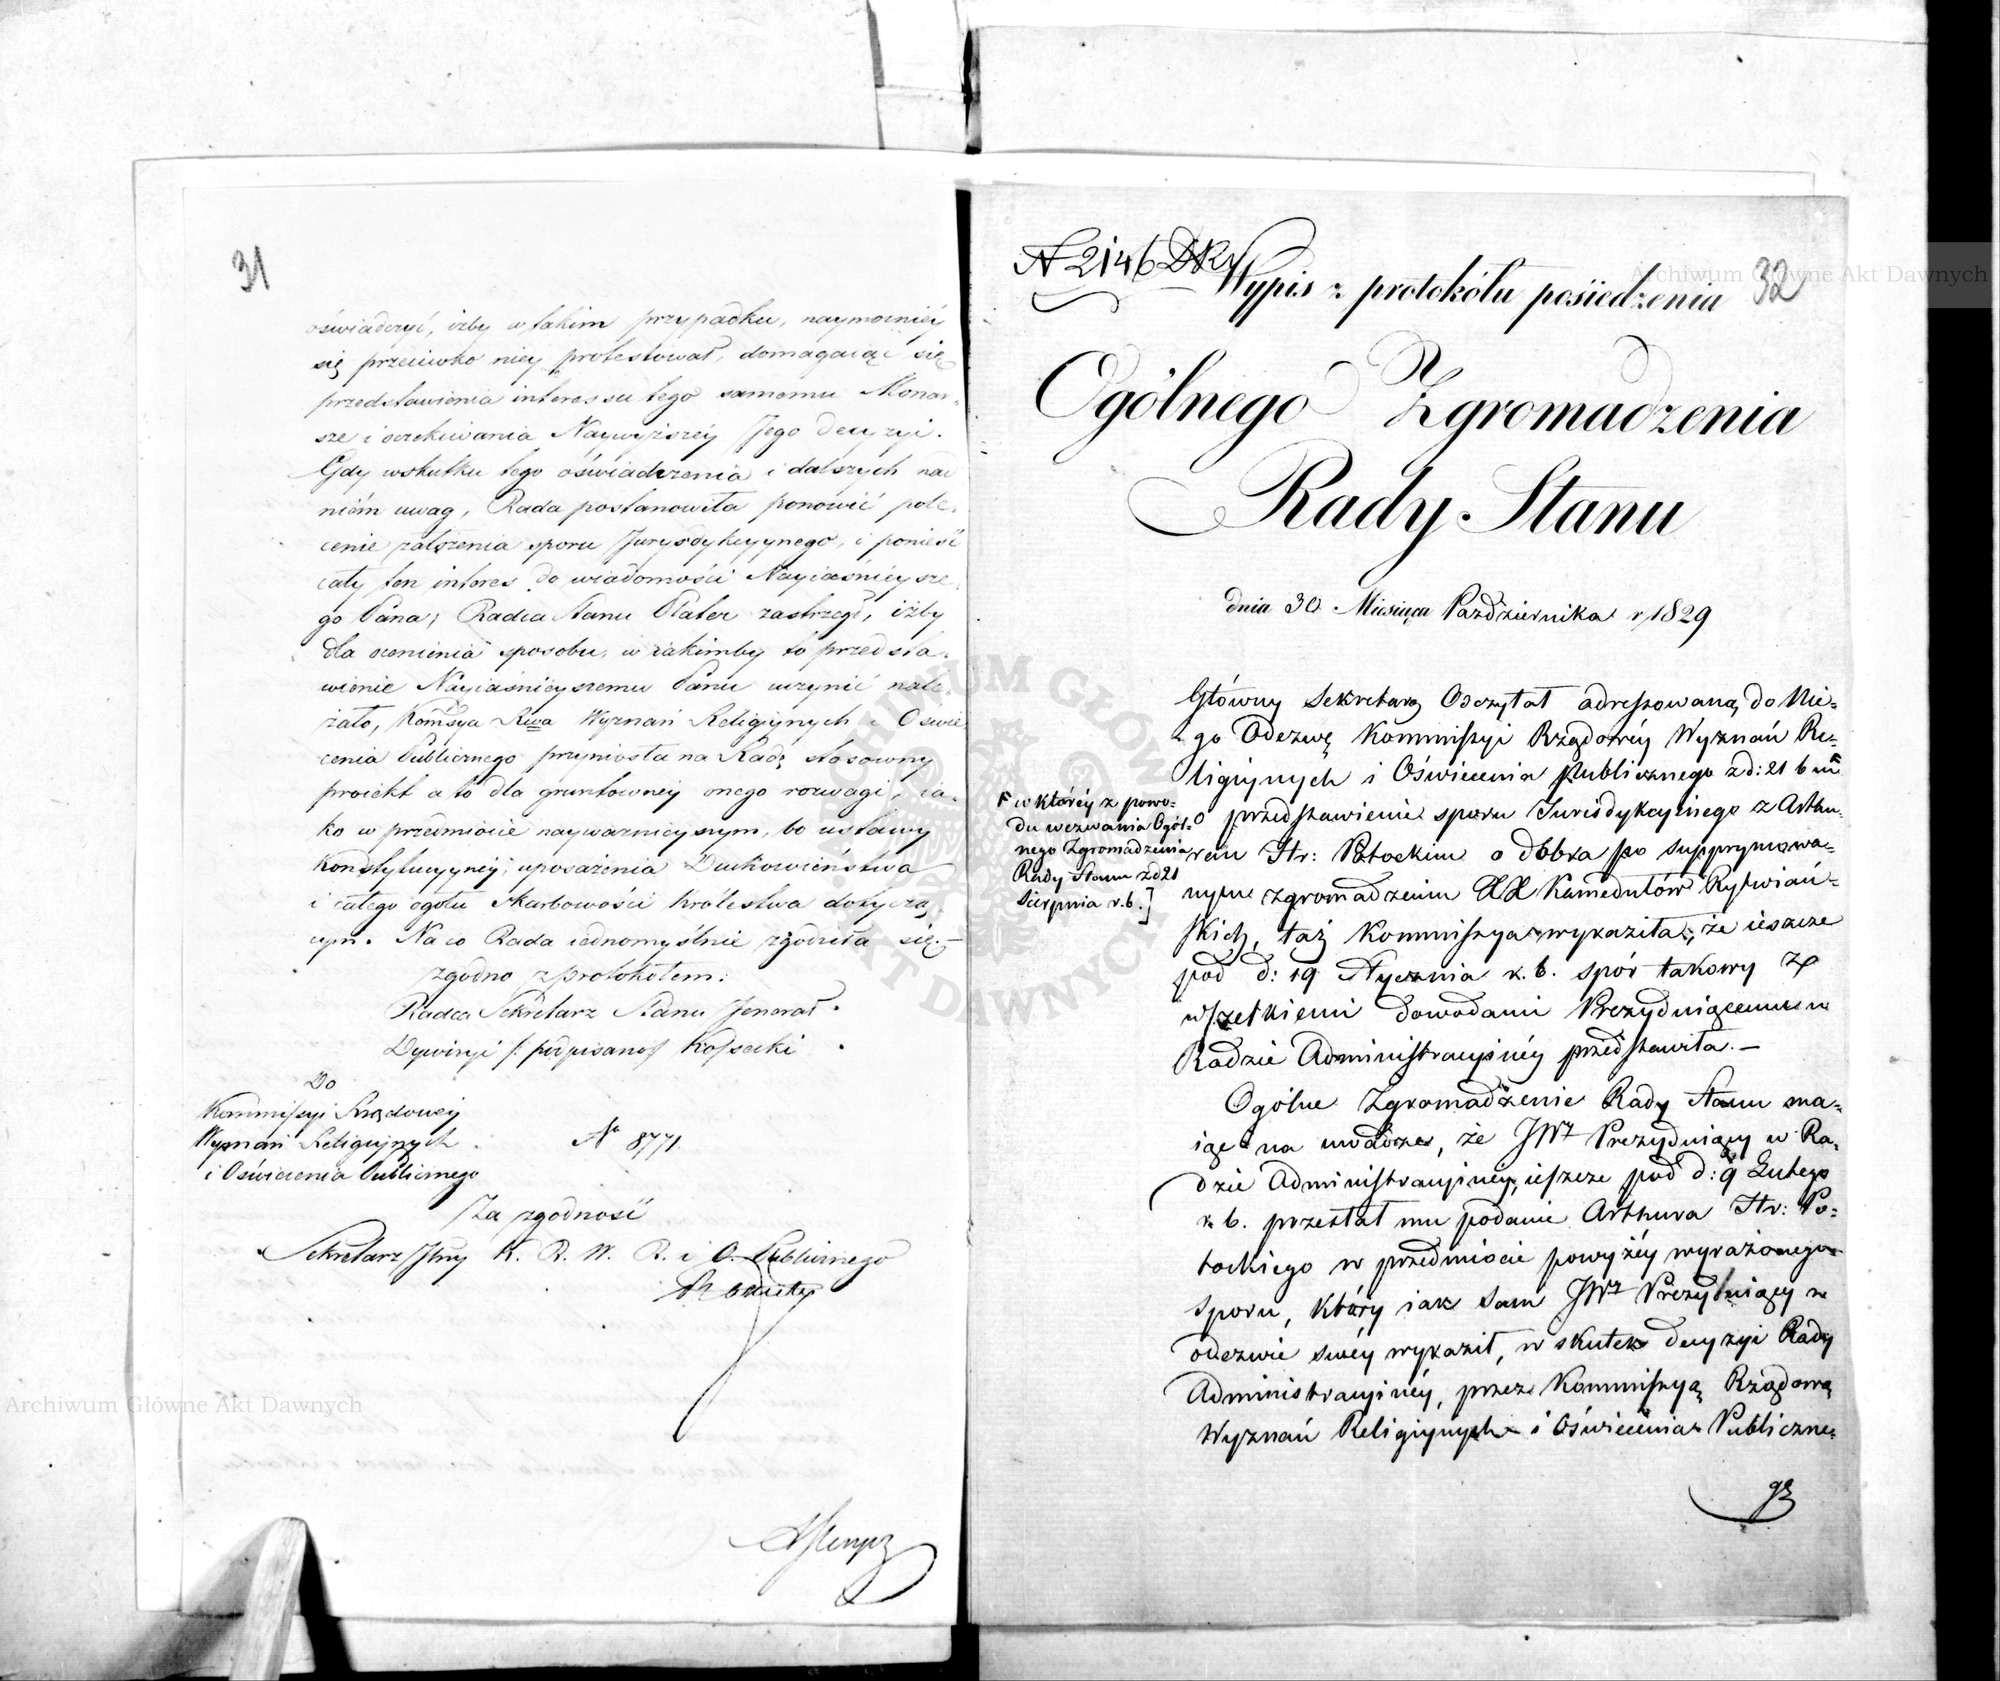 31
oświadczyć, iżby w takim przypadku, naymocniéy
się przeciwko niey protestował, domagaiąc się
przedstawienia interessu tego samemu Monar-
sze i oczekiwania Naywyższéy Jego decyzyi.
Gdy wskutku tego oświadczenia i dalszych nad
niém uwag, Rada postanowiła ponowić pole-
cenie załączenia sporu Jurysdykcyynego, i ponieść
cały ten interes do wiadomości Nayiaśnieysze-
go Pana; Radca Stanu Plater zastrzegł, iżby
dla ocenienia sposobu, w iakimby to przedsta-
wienie Nayiaśnieyszemu Panu uczynić nale-
żało, Kommsya Rwa Wyznań Religiynych i Oświe
cenia Publicznego przyniosła na Radę stosowny
proiekt a to dla gruntowney onego rozwagi, ia-
ko w przedmiocie nayważnieyszym, bo ustawy
Konstytucyyney, uposażenia Duchowieństwa
i całego ogółu Skarbowości Królestwa dotyczą-
cym. Na co Rada iednomyślnie zgodziła się.-
zgodno z protokołem:
Radca Sekretarz Stanu Jenerał
Dywizyi /: podpisano/ Kossecki
Do
Kommissyi Rządowéy
Wyznań Religiynych
i Oświecenia Publicznego
No 8771.
Za zgodność
Sekretarz Jlny K. R. W. R. i O. Publicznego
Archiwum Główne Akt Dawnych
No 2146 DKr
Wypis z protokółu posiedzenia
32
Archiwum Główne Akt Dawnych
Ogólnego Zgromadzenia
Rady Stanu
dnia 30 Miesiąca Października r 1829
Główny Sekretarz Odczytał adressowaną do Nie-
go Odezwę Kommissyi Rządowéy Wyznań Re-
ligiynych i Oświecenia Publicznego z d: 21 b m
F w któréy z powo-
du wezwania Ogól-
nego Zgromadzenia
Rady Stanu z d 21
Sierpnia r. b.]
o przedstawienie sporu Jurisdykcyinego z Arthu-
rem Hr: Potockim o dobra po supprymowa-
nym zgromadzeniu XX Kamedułów Rytwiań-
skich, taż Kommissya wyraziła, że ieszcze
pod d: 19 Stycznia r. b. spór takowy z
wszelkiemi dowodami Prezyduiącemu w
Radzie Administracyinéy przedstawiła.-
Ogólne Zgromadzenie Rady Stanu ma-
iąc na uwadze, że JWz Prezyduiący w Ra-
dzie Administracyinéy, ieszcze pod d: 9 Lutego
r. b. przesłał mu podanie Arthura Hr: Po-
tockiego w przedmiocie powyżéy wyrażonego
sporu, który iak sam JWz Prezyduiący w
odezwie swéy wyraził, w skutek decyzyi Rady
Administracyinéy, przez Kommissyą Rządową
Wyznań Religiynych i Oświecenia Publiczne-
go
ARCHIWUM GŁÓWNE AKT DAWNYCH